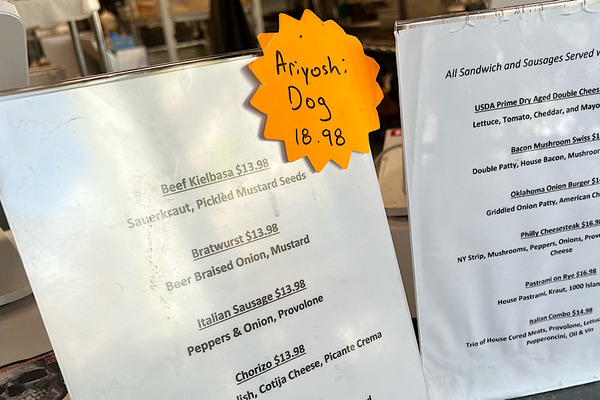 Ariyoshi
Dog
18.98
Beef Kielbasa $13.98
Sauerkraut, Pickled Mustard Seeds
Bratwurst $13.98
Beer Braised Onion, Mustard
Italian Sausage $13.98
Peppers & Onion, Provolone
Chorizo $13.98
Cotija Cheese, Picante Crema
All Sandwich and Sausages Served
USDA Prime Dry Aged Double
Lettuce, Tomato, Cheddar, and
Bacon Mushroom Swiss
Double Patty, House Bacon,
Oklahoma Onion Burger
Griddled Onion Patty, American
Philly Cheesesteak
NY Strip, Mushrooms, Peppers, Onions,
Cheese
Pastrami on Rye $16.98
House Pastrami, Kraut, 1000
Italian Combo $14.98
Trio of House Cured Meats, Provolone,
Pepperoncini, Oil & Vin